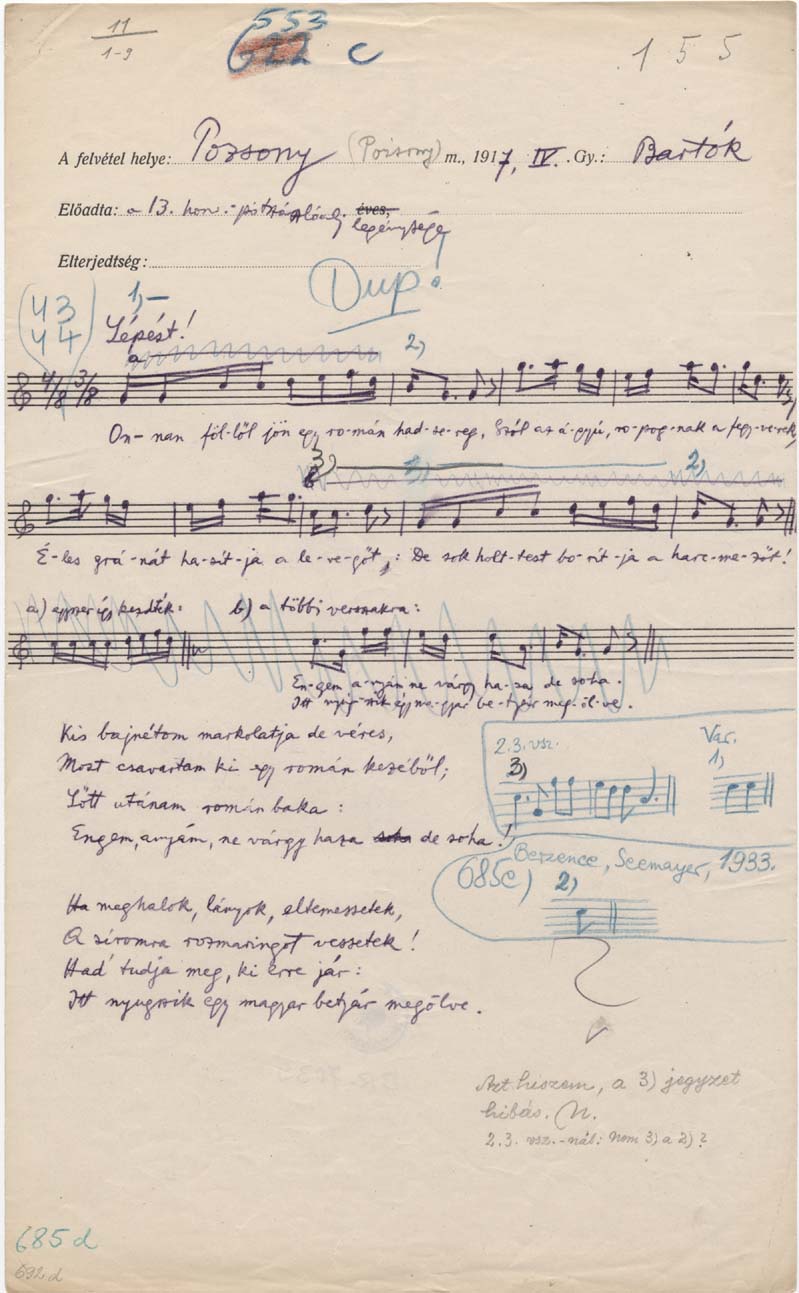 11
1-9
553
622 c
155
A felvétel helye: Pozsony (Pozsony) m., 1917, IV. Gy.: Bartók
Előadta: a 13. hon. éves, legénysége
Elterjedtség:
Dup!
(43
44)
1)
Lépést!
a
2)
4/8 3/8
On-nan föl-ből jön egy ro-mán had-se-reg, Szól az á-gyú, ro-pog-nak a fegy-verek,
3) 1) 2)
É-les grá-nát ha-sit-ja a le-ve-gőt,: De sok holt-test bo-rít-ja a harc-me-zőt!
a) egyszer így kezdték: b) a többi versszakra:
En-gem a-nyám ne várgy ha-za, de soha.
Itt nyug-szik egy ma-gyar be-tyár meg-öl-ve.
Kis bajnétom markolatja de véres,
Most csavartam ki egy román kezéből;
Lőtt utánam román baka:
Engem, anyám, ne várgy haza soha de soha!
2.3. vsz.
3)
Var.
1)
685c) Berzence, Seemayer, 1933.
2)
Ha meghalok, lányok, eltemessetek,
A síromra rozmaringot vessetek!
Had' tudja meg, ki erre jár:
Itt nyugszik egy magyar betyár megölve.
Azt hiszem, a 3) jegyzet
hibás.
2.3. vsz.-nál: nem 3) a 2)?
685 d
692 d